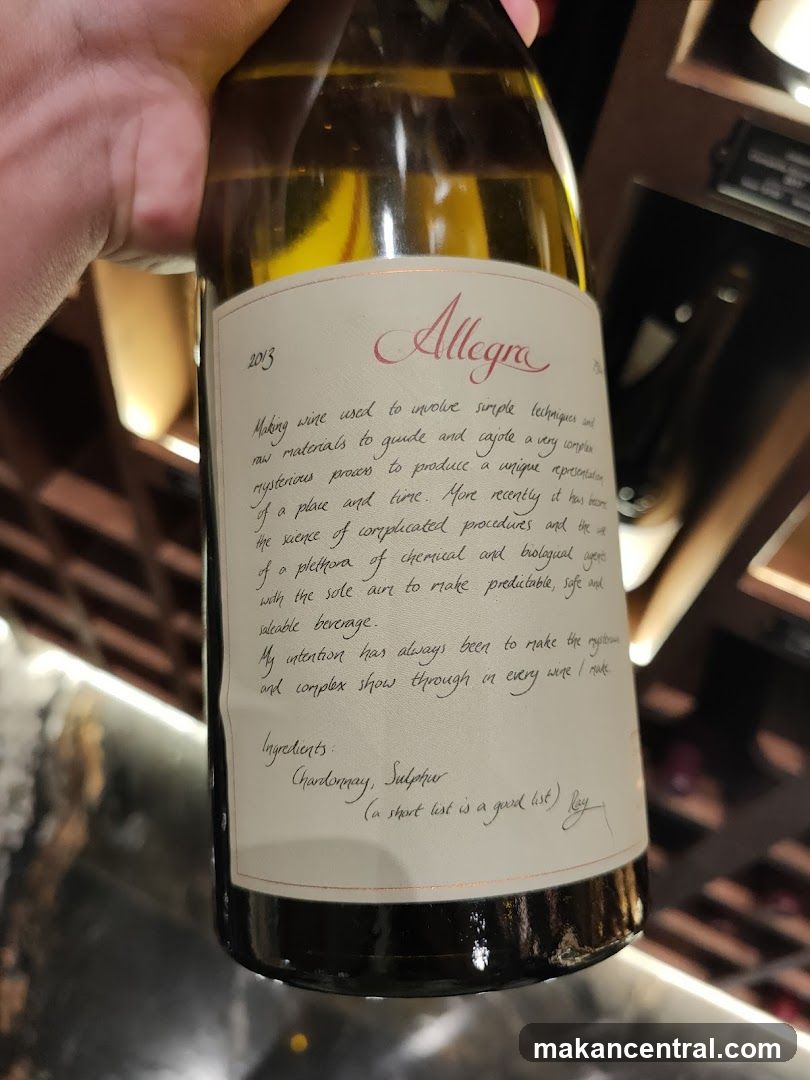 2013
Allegra
Making wine used to involve simple techniques and
raw materials to guide and cajole a very complex
mysterious process to produce a unique representation
of a place and time. More recently it has become
the science of complicated procedures and the use
of a plethora of chemical and biological agents
with the sole aim to make predictable, safe and
saleable beverage.
My intention has always been to make the mysterious
and complex show through in every wine I make.
Ingredients:
Chardonnay, Sulphur
(a short list is a good list) Ray
makancentral.com